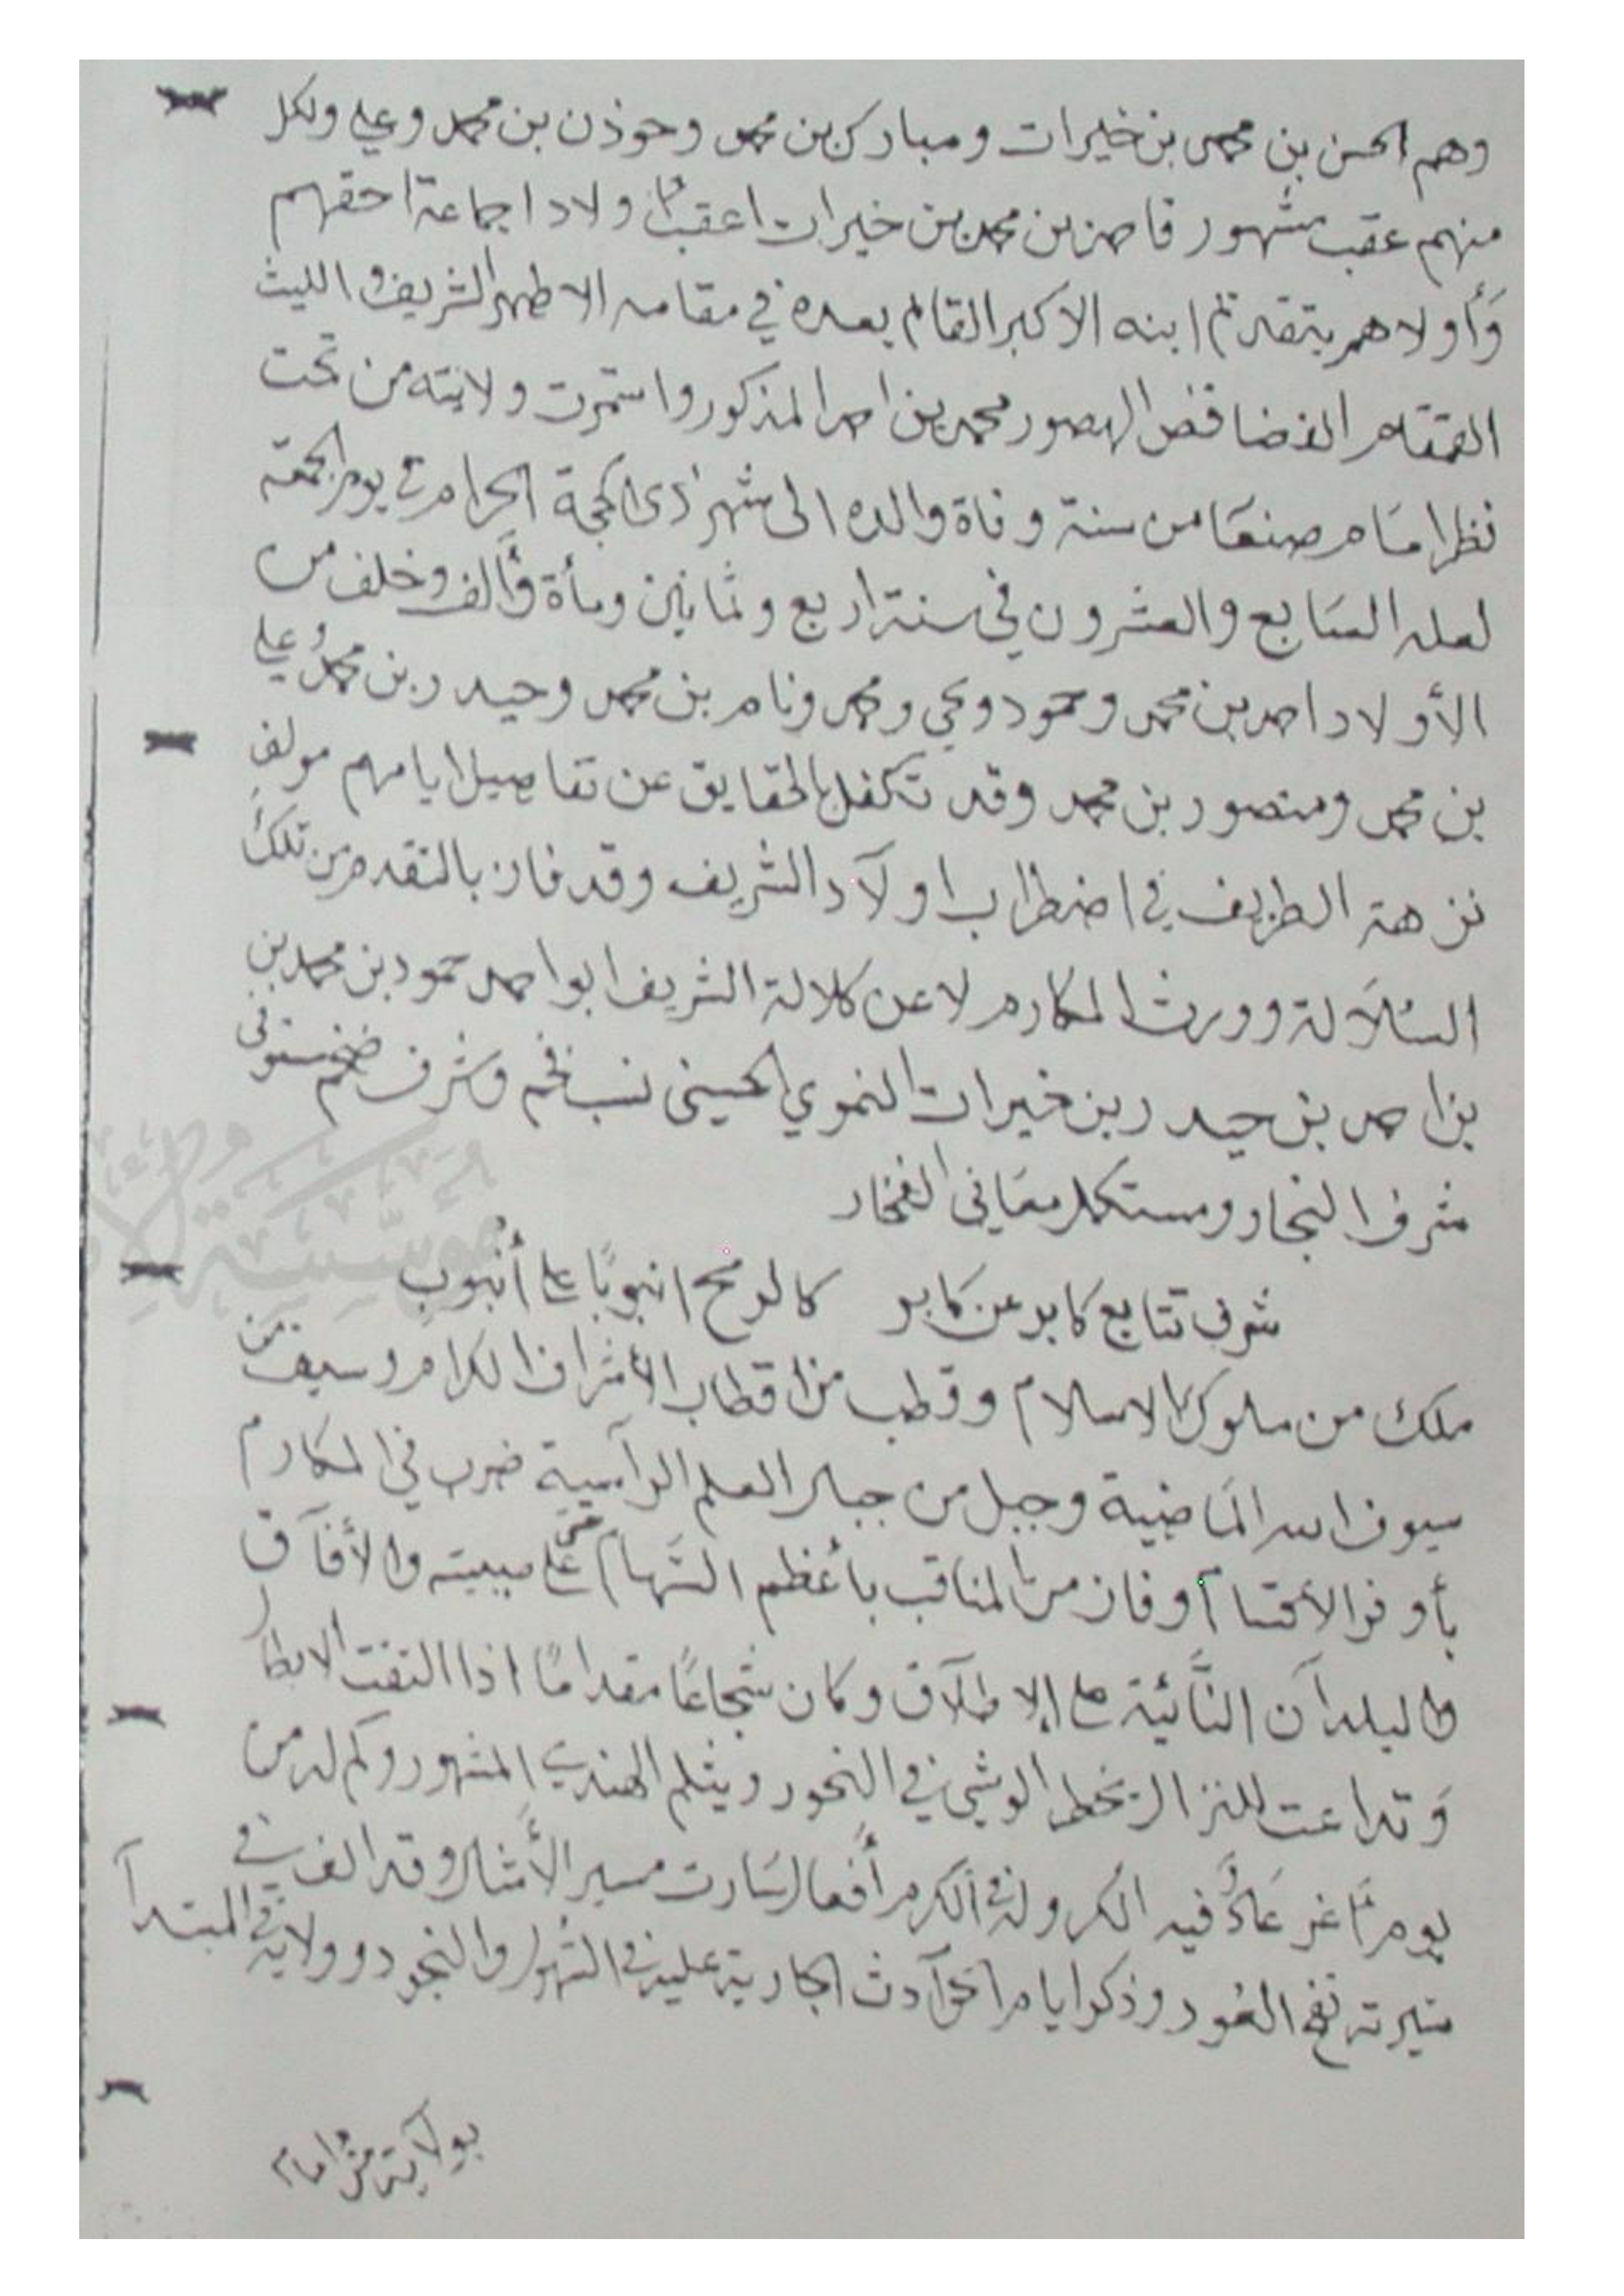 وهم الحسن بن محمد بن خيرات ومبارك بن محمد وحوذن بن محمد وعلي ولكل
منهم عقب مشهور فاحمد بن محمد بن خيرات اعقب اولادا جماعة احقهم
وأولاهم بتقديم ابنه الاكبر القائم بعده في مقامه الاطهر الشريف والليث
القمقام الفضافض الهصور محمد بن احمد المذكور واستمرت ولايته من تحت
نظر امام صنعا من سنة وفاة والده الى شهر ذي الحجة الحرام في يوم الجمعة
لعله السابع والعشرون في سنة اربع وثمانين ومأة وألف وخلف من
الأولاد احمد بن محمد وحمود ويحي ومحمد وناصر بن محمد وحيدر بن محمد وعلي
بن محمد ومنصور بن محمد وقد تكفل بالحقايق عن تفاصيل ايامهم مولف
نزهة الظريف في اضطراب اولاد الشريف وقد فاز بالتقدم من تلك
السلالة وورث المكارم لا عن كلالة الشريف ابو احمد حمود بن محمد بن
بن احمد بن حيدر بن خيرات النموي الحسني نسب فخم وشرف ضخم مستوفي
شرف النجار ومستكمل معاني الفخار
شرف تتابع كابر عن كابر كالرمح انبوبًا على أنبوب
ملك من ملوك الاسلام وقطب من اقطاب الأشراف الكرام وسيف من
سيوف الله الماضية وجبل من جبال العلم الرآسية ضرب في المكارم
بأوفر الأقسام وفاز من المناقب بأعظم السهام على هيبته والأفآق
والبلدآن النآئية على الاطلآق وكان شجاعًا مقدامًا اذا التفت الابطال
وتداعت للنزال يخطط الوشي في النحور ويثلم الهندي المشهور وكم له من
يوم أغر عاد فيه الكر وله في الكرم أفعال سارت مسير الأمثال وقد الف في
سيرته نفح العود وذكر ايام الحوآدث الجارية عليه في السهول والنجود وولايته في المبتدآ
بولآية من امام